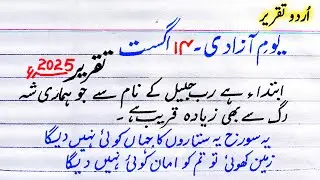 اُردو تقریر
یومِ آزادی - ۱۴ اگست
تقریر 2025ء
ابتداء ہے ربِ جلیل کے نام سے جو ہماری شہ
رگ سے بھی زیادہ قریب ہے۔
یہ سورج یہ ستاروں کا جہاں کوئی نہیں دیگا
زمین کھوئی تو تم کو امان کوئی نہیں دیگا